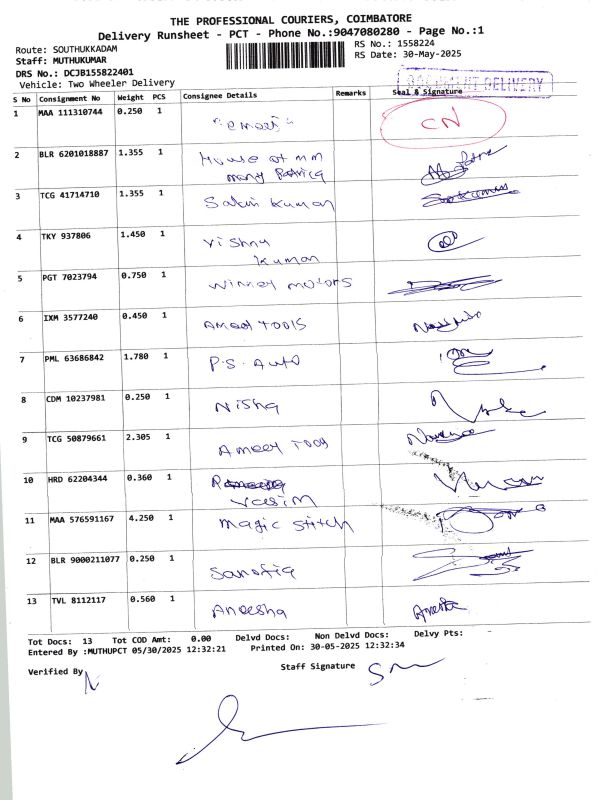 THE PROFESSIONAL COURIERS, COIMBATORE
Delivery Runsheet - PCT - Phone No.:9047080280 - Page No.:1
Route: SOUTHUKKADAM
Staff: MUTHUKUMAR
DRS No.: DCJB155822401
Vehicle: Two Wheeler Delivery
RS No.: 1558224
RS Date: 30-May-2025
DELIVERY
S No Consignment No Weight PCS Consignee Details Remarks Seal & Signature
1 MAA 111310744 0.250 1 CN
2 BLR 6201018887 1.355 1 House of mm
3 TCG 41714710 1.355 1 Kumar
4 TKY 937806 1.450 1 Vishnu
Kumar
5 PGT 7023794 0.750 1 motors
6 IXM 3577240 0.450 1 Ameet Tools
7 PML 63686842 1.780 1 P.S. Auto
8 CDM 10237981 0.250 1 Nisha
9 TCG 50879661 2.305 1 Ameet
10 HRD 62204344 0.360 1
Vasim
11 MAA 576591167 4.250 1 Magic Stitch
12 BLR 9000211077 0.250 1
13 TVL 8112117 0.560 1 Aneesha
Tot Docs: 13 Tot COD Amt: 0.00 Delvd Docs: Non Delvd Docs: Delvy Pts:
Entered By :MUTHUPCT 05/30/2025 12:32:21 Printed On: 30-05-2025 12:32:34
Verified By Staff Signature